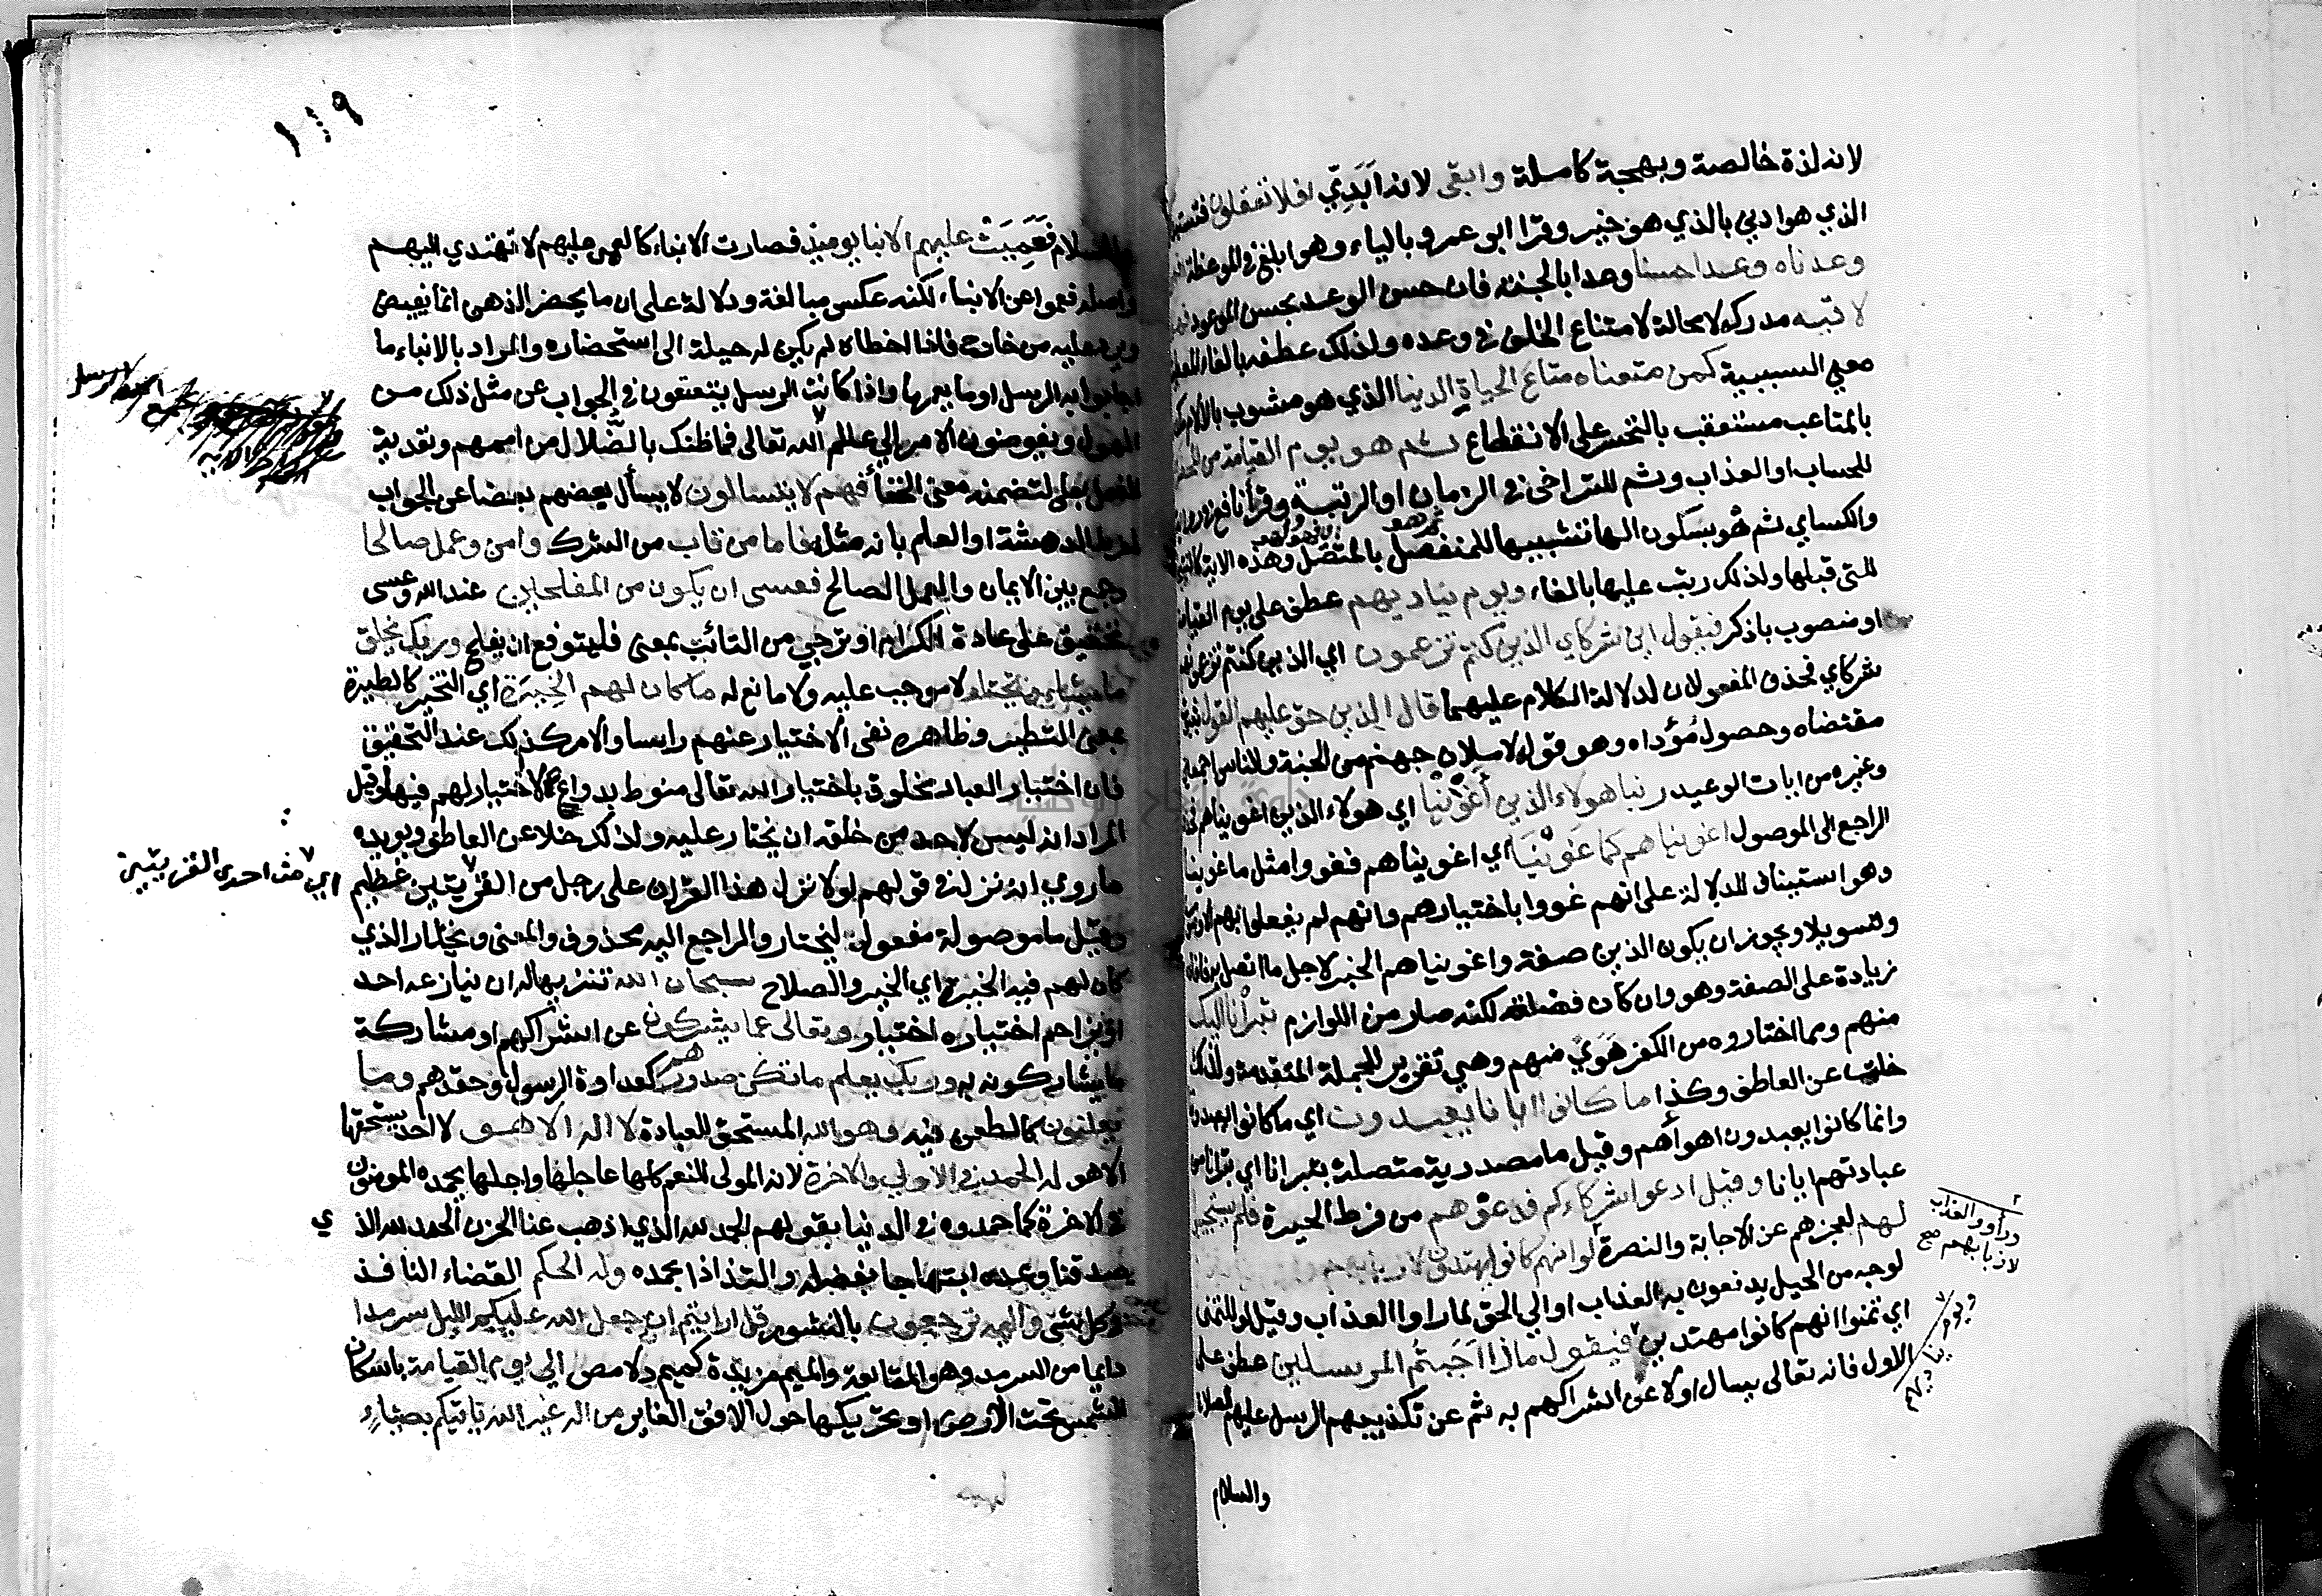 لانه لذة خالصة وبهجة كاملة وابقى لانه ابَدِيّ افلا تعقلون
الذي هو ادنى بالذي هو خير وقرا ابو عمرو بالياء وهو ابلغ في الموعظة
وعدناه وعدا حسنا وعدا بالجنة فان حسن الوعد بحسن الموعود
لاقيه مدركه لا محالة لامتناع الخلف في وعده ولذلك عطفه بالفاء
معنى السببية كمن متعناه متاع الحياة الدنيا الذي هو مشوب بالالام
بالمتاعب مستعقب بالتحسر على الانقطاع ثم هو يوم القيامة من
للحساب او العذاب وثم للتراخي في الزمان او الرتبة وقرأ نافع
والكساي ثم هْو بسكون الها تشبيها للمنفصل بالمتصل وهذه الاية
للتي قبلها ولذلك رتب عليها بالفاء ويوم يناديهم عطف على يوم
او منصوب باذكر فيقول اين شركاي الذين كنتم تزعمون اي الذين كنتم
شركاي فحذف المفعولان لدلالة الكلام عليهما قال الذين حق عليهم القول
مقتضاه وحصول مُؤداه وهو قوله لاملان جهنم من الجنة والناس
وغيره من ايات الوعيد ربنا هولاء الذين أَغوَيْنا اي هولاء الذين اغويناهم
الراجع الى الموصول اغويناهم كما غَوَيْنَا اي اغويناهم فغووا مثل ما غوينا
وهو استيناف للدلالة على انهم غووا باختيارهم وانهم لم يفعلوا بهم
وتسويلا ويجوز ان يكون الذين صفة واغويناهم الخبر لاجل ما اتصل به
زيادة على الصفة وهو وان كان فضلة لكنه صار من اللوازم تبرأنا اليك
منهم ومما اختاروه من الكفر هَوًى منهم وهي تقرير للجملة المتقدمة ولذلك
خلت عن العاطف وكذا ما كانوا ايانا يعبدون اي ما كانوا
وانما كانوا يعبدون اهوأهم وقيل ما مصدرية متصلة بتبرانا اي
عبادتهم ايانا وقيل ادعوا شركاءكم فدعوهم من فرط الحيرة فلم
لهم لعجزهم عن الاجابة والنصرة لو انهم كانوا يهتدون
لوجه من الحيل يدفعون به العذاب او الى الحق لما راوا العذاب وقيل لو للتمنى
اي تمنوا انهم كانوا مهتدين فيقول ماذا اَجَبتُم المرسلين عطف على
الاول فانه تعالى يسال اولا عن اشراكهم به ثم عن تكذيبهم الرسل عليهم الصلاة
ورأوا العذاب
ويوم يناديهم
والسلام
١٤٩
والسلام فَعَمِيَتْ عليهم الانبا يوميذ فصارت الانباء كالعمى عليهم لا تهتدي اليهم
واصله فعموا عن الانباء لكنه عكس مبالغة ودلالة على ان ما يحضر الذهن انما يفيض
ويرد عليه من خارج فاذا اخطاه لم يكن له حيلة الى استحضاره والمراد بالانباء ما
اجابوا به الرسل او ما يعمها واذا كانت الرسل يتعتعون في الجواب عن مثل ذلك من
الهول ويفوضون الامر الى علم الله تعالى فما ظنك بالضُّلال من اممهم وتعدية
الفعل بعلى لتضمنه معنى الخفأ فهم لا يتسالون لا يسأل بعضهم بعضا عن الجواب
لفرط الدهشة او العلم بانه مثله فاما من تاب من الشرك وامن وعمل صالحا
وجمع بين الايمان والعمل الصالح فعسى ان يكون من المفلحين عند الله وعسى
تحقيق على عادة الكرام او ترجي من التائب بمعنى فليتوقع ان يفلح وربك يخلق
ما يشاء ويختار لا موجب عليه ولا مانع له ما كان لهم الخِيَرَة اي التخير كالطيرة
بمعنى التطير وظاهره نفي الاختيار عنهم راسا والامر كذلك عند التحقيق
فان اختيار العباد مخلوق باختيار الله تعالى منوط بدواع لا اختيار لهم فيها وقيل
المراد انه ليس لاحد من خلقه ان يختار عليه ولذلك خلا عن العاطف ويويده
ما روي انه نزل في قولهم لولا نزل هذا القران على رجل من القريتين عَظيم
وقيل ما موصولة مفعول ليختار والراجع اليه محذوف والمعنى ويختار الذي
كان لهم فيه الخيرة اي الخير والصلاح سبحان الله تنزيها له ان ينازعه احد
او يزاحم اختياره اختيار وتعالى عما يشركون عن اشراكهم او مشاركة
ما يشاركونه به وربك يعلم ما تكن صدورهم كعداوة الرسول وحقدهم وما
يعلنون كالطعن فيه وهو الله المستحق للعبادة لا اله الا هو لا احد يستحقها
الا هو له الحمد في الاولى والاخرة لانه المولى للنعم كلها عاجلها واجلها يحمده المومنون
في الاخرة كما حمدوه في الدنيا بقولهم الحمد لله الذي اذهب عنا الحزن الحمد لله الذي
صدقنا وعده ابتهاجا بفضله والتذاذا بحمده وله الحكم القضاء النافذ
في كل شي واليه ترجعون بالنشور قل ارايتم ان جعل الله عليكم الليل سرمدا
دايما من السرمد وهو المتابعة والميم مزيدة كميم دلامص الى يوم القيامة باسكان
الشمس تحت الارض او تحريكها حول الافق الغاير من اله غير الله ياتيكم بضياءٍ
اي من احدى القريتين